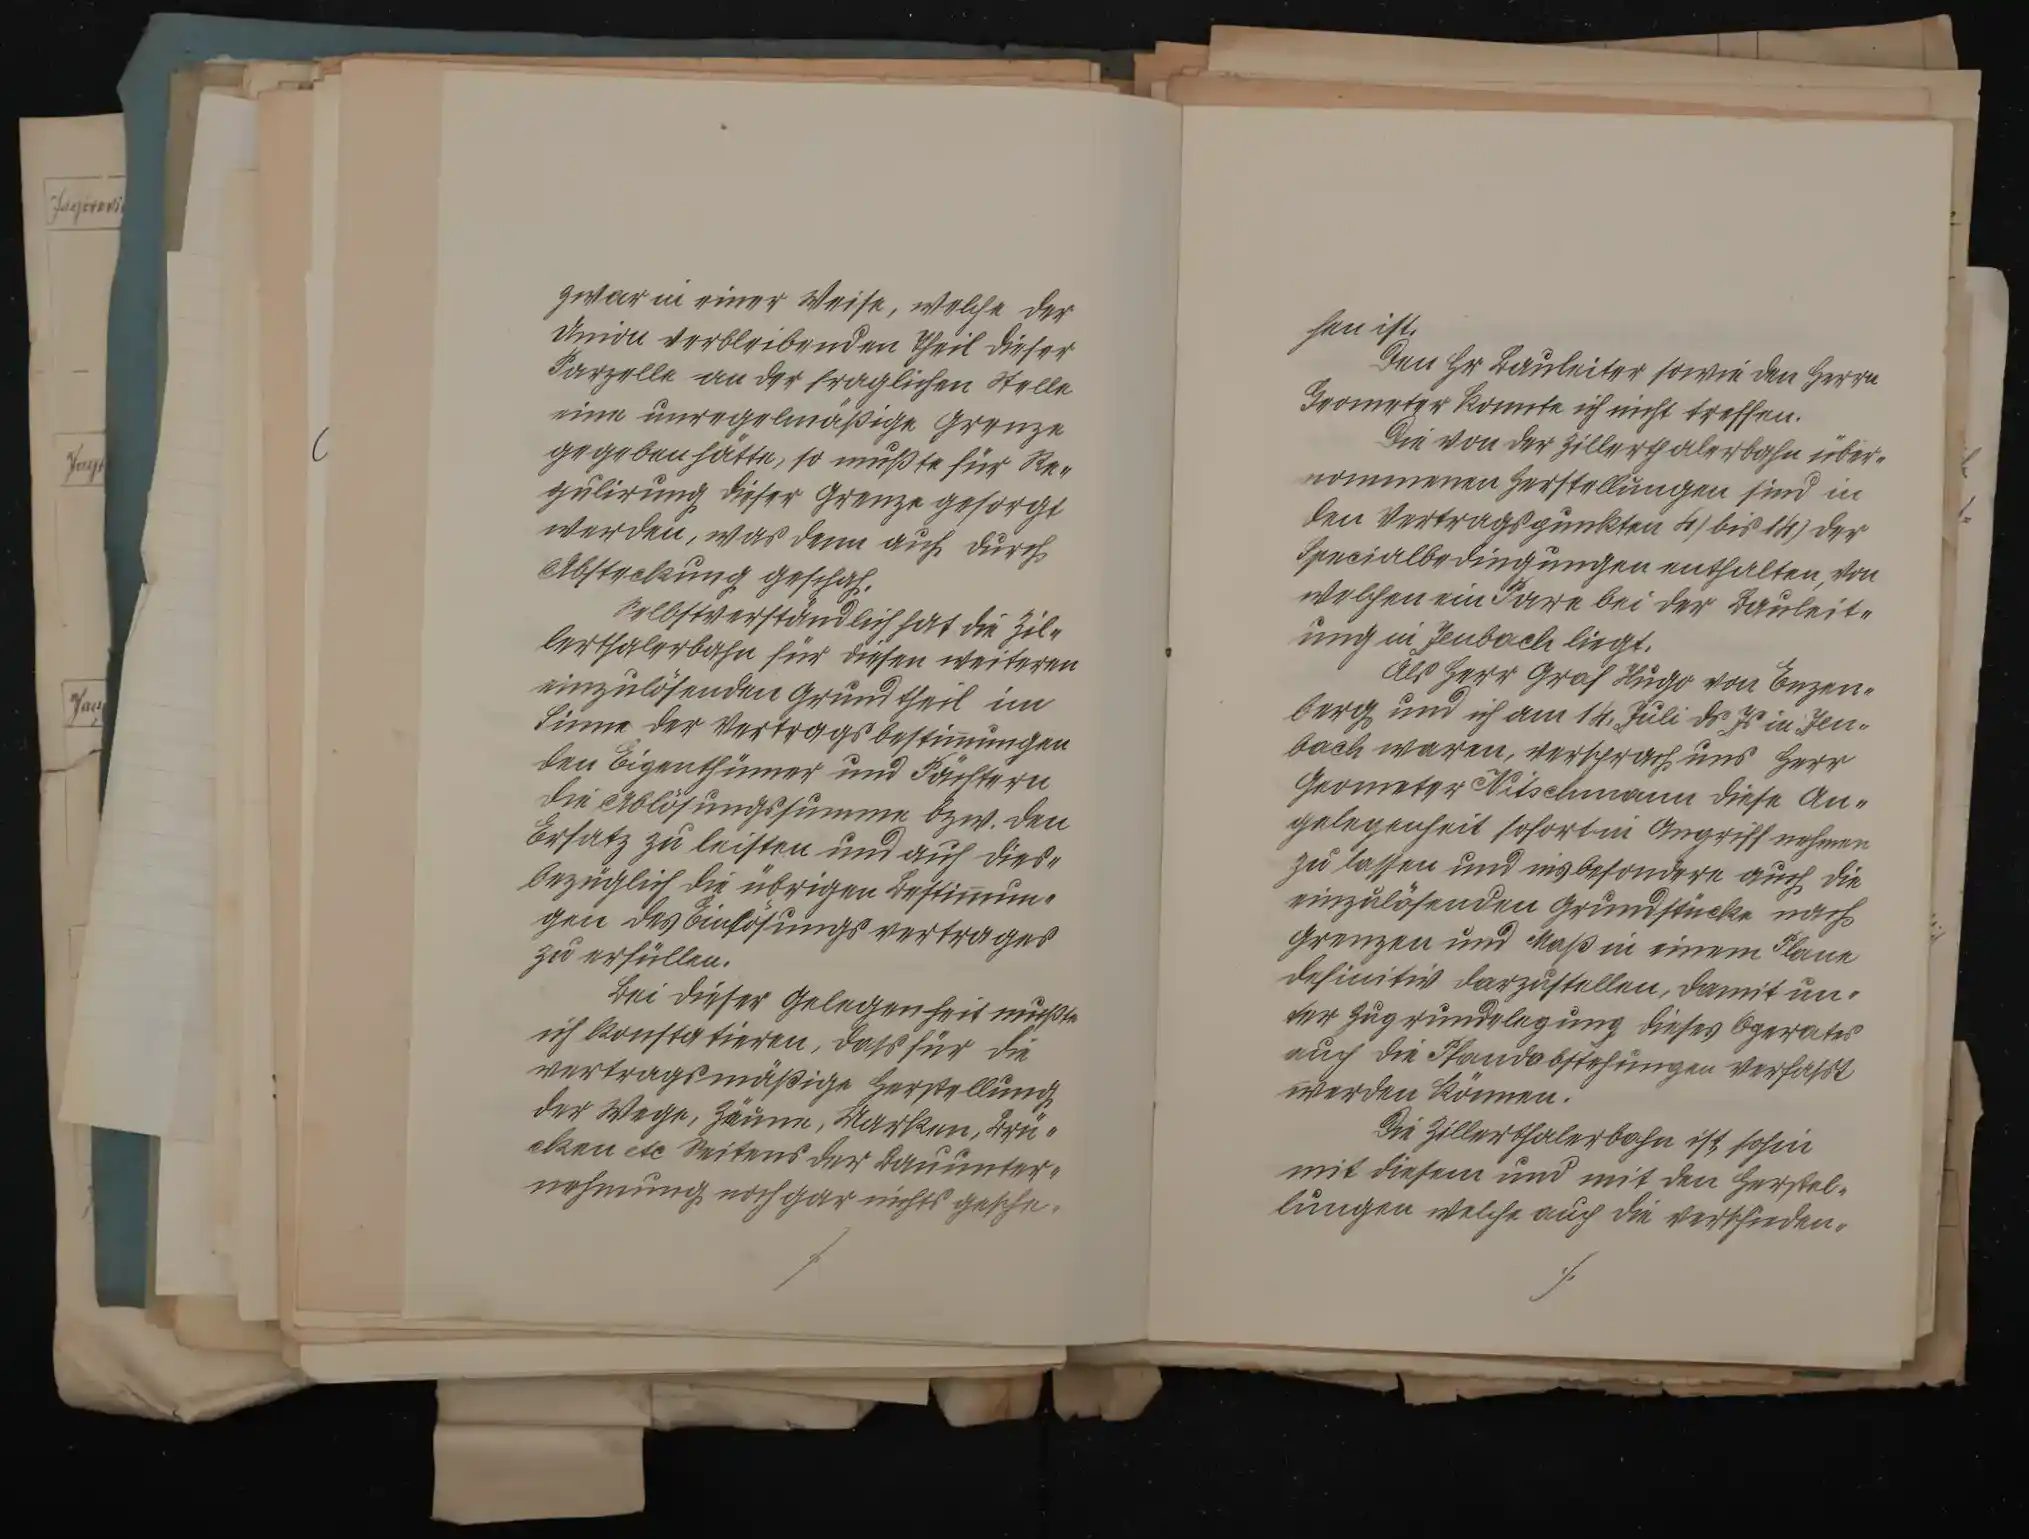 zwar in einer Weise, welche der
Union verbleibenden Theil dieser
Parzelle an der fraglichen Stelle
eine unregelmäßige Grenze
gegeben hätte, so mußte für Re„
gulirung dieser Grenze gesorgt
werden, was denn auch durch
Absteckung geschah.
Selbstverständlich hat die Zil„
lerthalerbahn für diesen weiteren
einzulösenden Grundtheil im
Sinne der Vertragsbestim̄ungen
den Eigenthümer und Pächtern
die Ablösungssumme bzw. den
Ersatz zu leisten und auch dies„
bezüglich die übrigen Bestim̄un„
gen des Einlösungsvertrages
zu erfüllen.
Bei dieser Gelegenheit mußte
ich konstatieren, dass für die
vertragsmäßige Herstellung
der Wege, Zäune, Marken, Brü„
cken etc Seitens der Bauunter„
nehmung noch gar nichts gesche„
hen ist.
Den Hr Bauleiter sowie den Herrn
Geometer konnte ich nicht treffen.
Die von der Zillerthalerbahn über„
nommenen Herstellungen sind in
den Vertragspunkten 4) bis 14) der
Specialbedingungen enthalten, von
welchen ein Pare bei der Bauleit„
ung in Jenbach liegt.
Als Herr Graf Hugo von Enzen„
berg und ich am 14. Juli ds Js in Jen„
bach waren, versprach uns Herr
Geometer Nitschmann diese An„
gelegenheit sofort in Angriff nehmen
zu lassen und insbesondere auch die
einzulösenden Grundstücke nach
Grenzen und Maß in einem Plane
definitiv darzustellen, damit un„
ter Zugrundelegung dieses Operates
auch die Pfandabstehungen verfasst
werden können.
Die Zillerthalerbahn ist sohin
mit diesem und mit den Herstel„
lungen welche auch die verschieden„
·/.